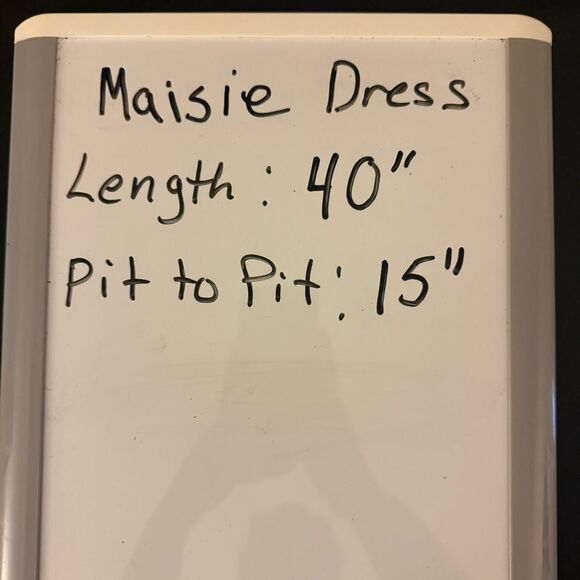 Maisie Dress
Length: 40"
Pit to Pit: 15"